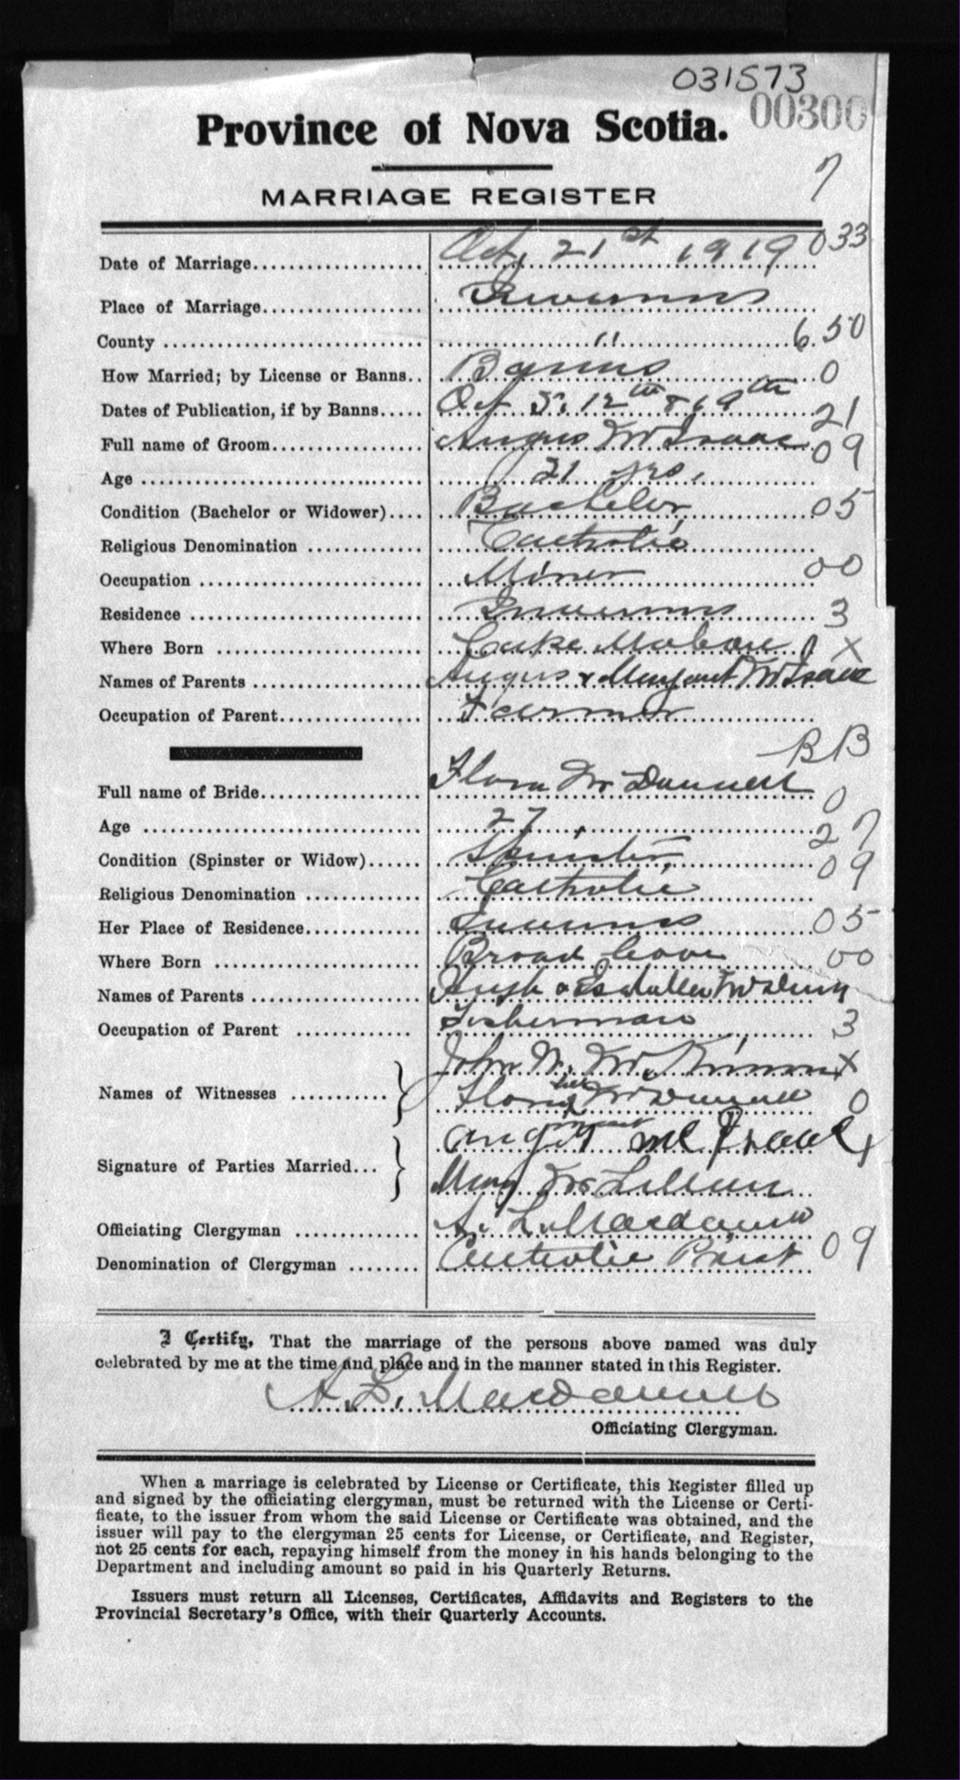 031573
00300
Province of Nova Scotia.
7
MARRIAGE REGISTER
033
Date of Marriage Oct, 21st 1919
Place of Marriage Inverness
County " 6.50
How Married; by License or Banns.. Banns 0
Dates of Publication, if by Banns Oct 5, 12th & 19th 21
Full name of Groom Angus McIsaac 09
Age 21 yrs.
Condition (Bachelor or Widower) Bachelor 05
Religious Denomination Catholic
Occupation Miner 00
Residence Inverness 3
Where Born Cape Mabou X
Names of Parents Angus & Margaret McIsaac
Occupation of Parent Farmer
BB
Full name of Bride Flora McDonnell 0
Age 27 27
Condition (Spinster or Widow) Spinster 09
Religious Denomination Catholic
Her Place of Residence Inverness 05
Where Born Broad Cove 00
Names of Parents &
Occupation of Parent Fisherman 3
John Mc X
Names of Witnesses
Flora her X mark McDonnell 0
Angus Mc Isaac X
Signature of Parties Married...
Mary McLellan
Officiating Clergyman A. L. Macdonell
Denomination of Clergyman Catholic Priest 09
I Certify, That the marriage of the persons above named was duly
celebrated by me at the time and place and in the manner stated in this Register.
A. L. Macdonell
Officiating Clergyman.
When a marriage is celebrated by License or Certificate, this Register filled up
and signed by the officiating clergyman, must be returned with the License or Certi-
ficate, to the issuer from whom the said License or Certificate was obtained, and the
issuer will pay to the clergyman 25 cents for License, or Certificate, and Register,
not 25 cents for each, repaying himself from the money in his hands belonging to the
Department and including amount so paid in his Quarterly Returns.
Issuers must return all Licenses, Certificates, Affidavits and Registers to the
Provincial Secretary's Office, with their Quarterly Accounts.